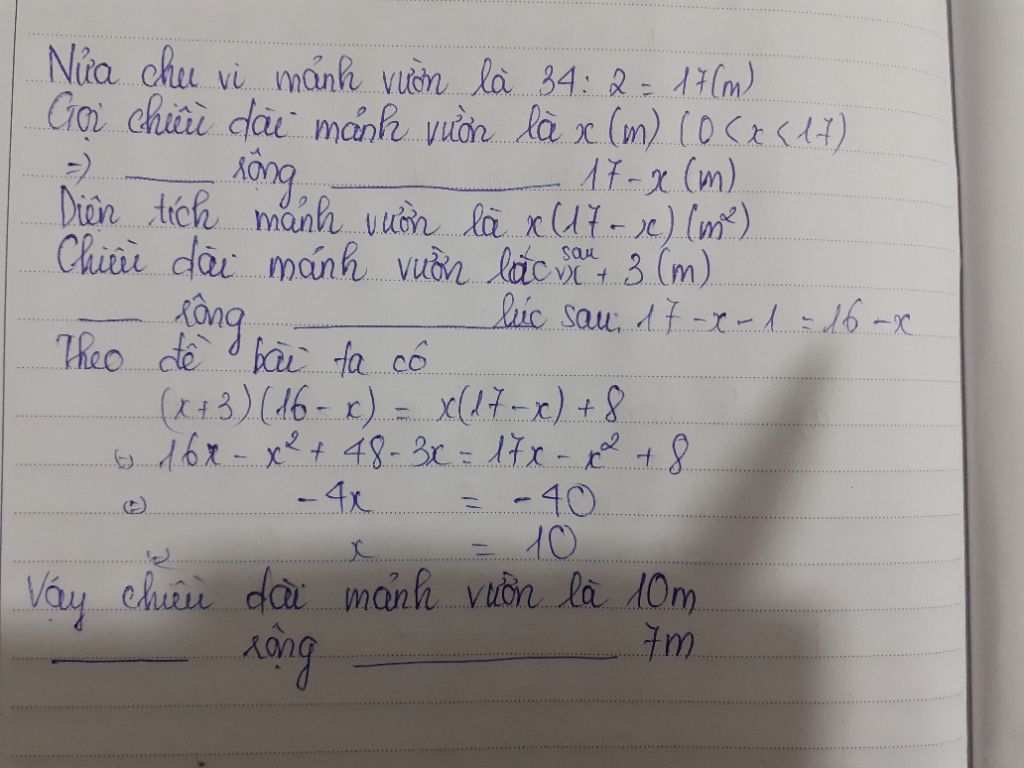 Nửa chu vi mảnh vườn là 34 : 2 = 17(m)
Gọi chiều dài mảnh vườn là x (m) (0 < x < 17)
=> ___ rộng ___ 17 - x (m)
Diện tích mảnh vườn là x(17 - x) (m²)
Chiều dài mảnh vườn lúc sau x + 3 (m)
___ rộng ___ lúc sau: 17 - x - 1 = 16 - x
Theo đề bài ta có
(x + 3) (16 - x) = x(17 - x) + 8
⇔ 16x - x² + 48 - 3x = 17x - x² + 8
⇔ -4x = -40
⇔ x = 10
Vậy chiều dài mảnh vườn là 10m
___ rộng ___ 7m